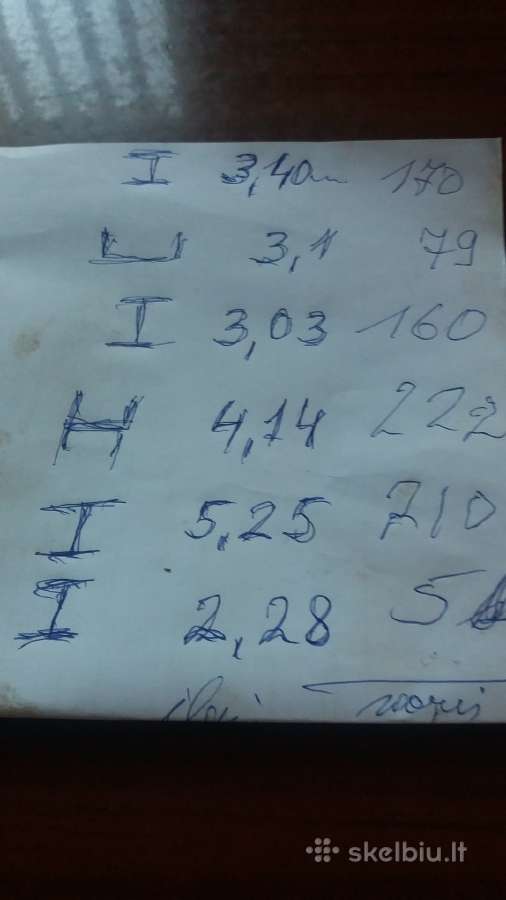 I 3,40m 170
3,1 79
I 3,03 160
H 4,14 222
I 5,25 710
I 2,28
skelbiu.lt